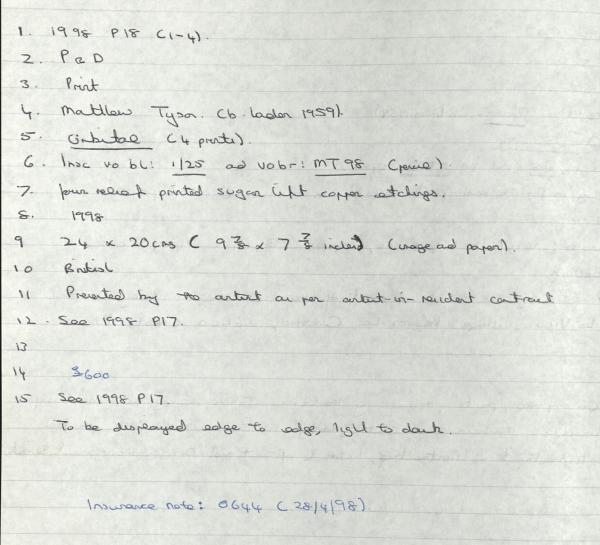 1. 1998 P18 (1-4).
2. P & D
3. Print
4. Matthew Tyson. (b. London 1959).
5. (4 prints).
6. Insc vo bl: 1/25 ad vo br: MT 98 (pencil)
7. four relief printed sugar lift copper etchings.
8. 1998
9 24 x 20cms ( 9 7/8 x 7 7/8 inches) (image ad paper).
10 British
11 Presented by the artist as per artist-in-resident contract
12. See 1998 P17.
13
14 £600
15 See 1998 P17.
To be displayed edge to edge, light to dark.
Insurance note: 0644 (28/4/98)